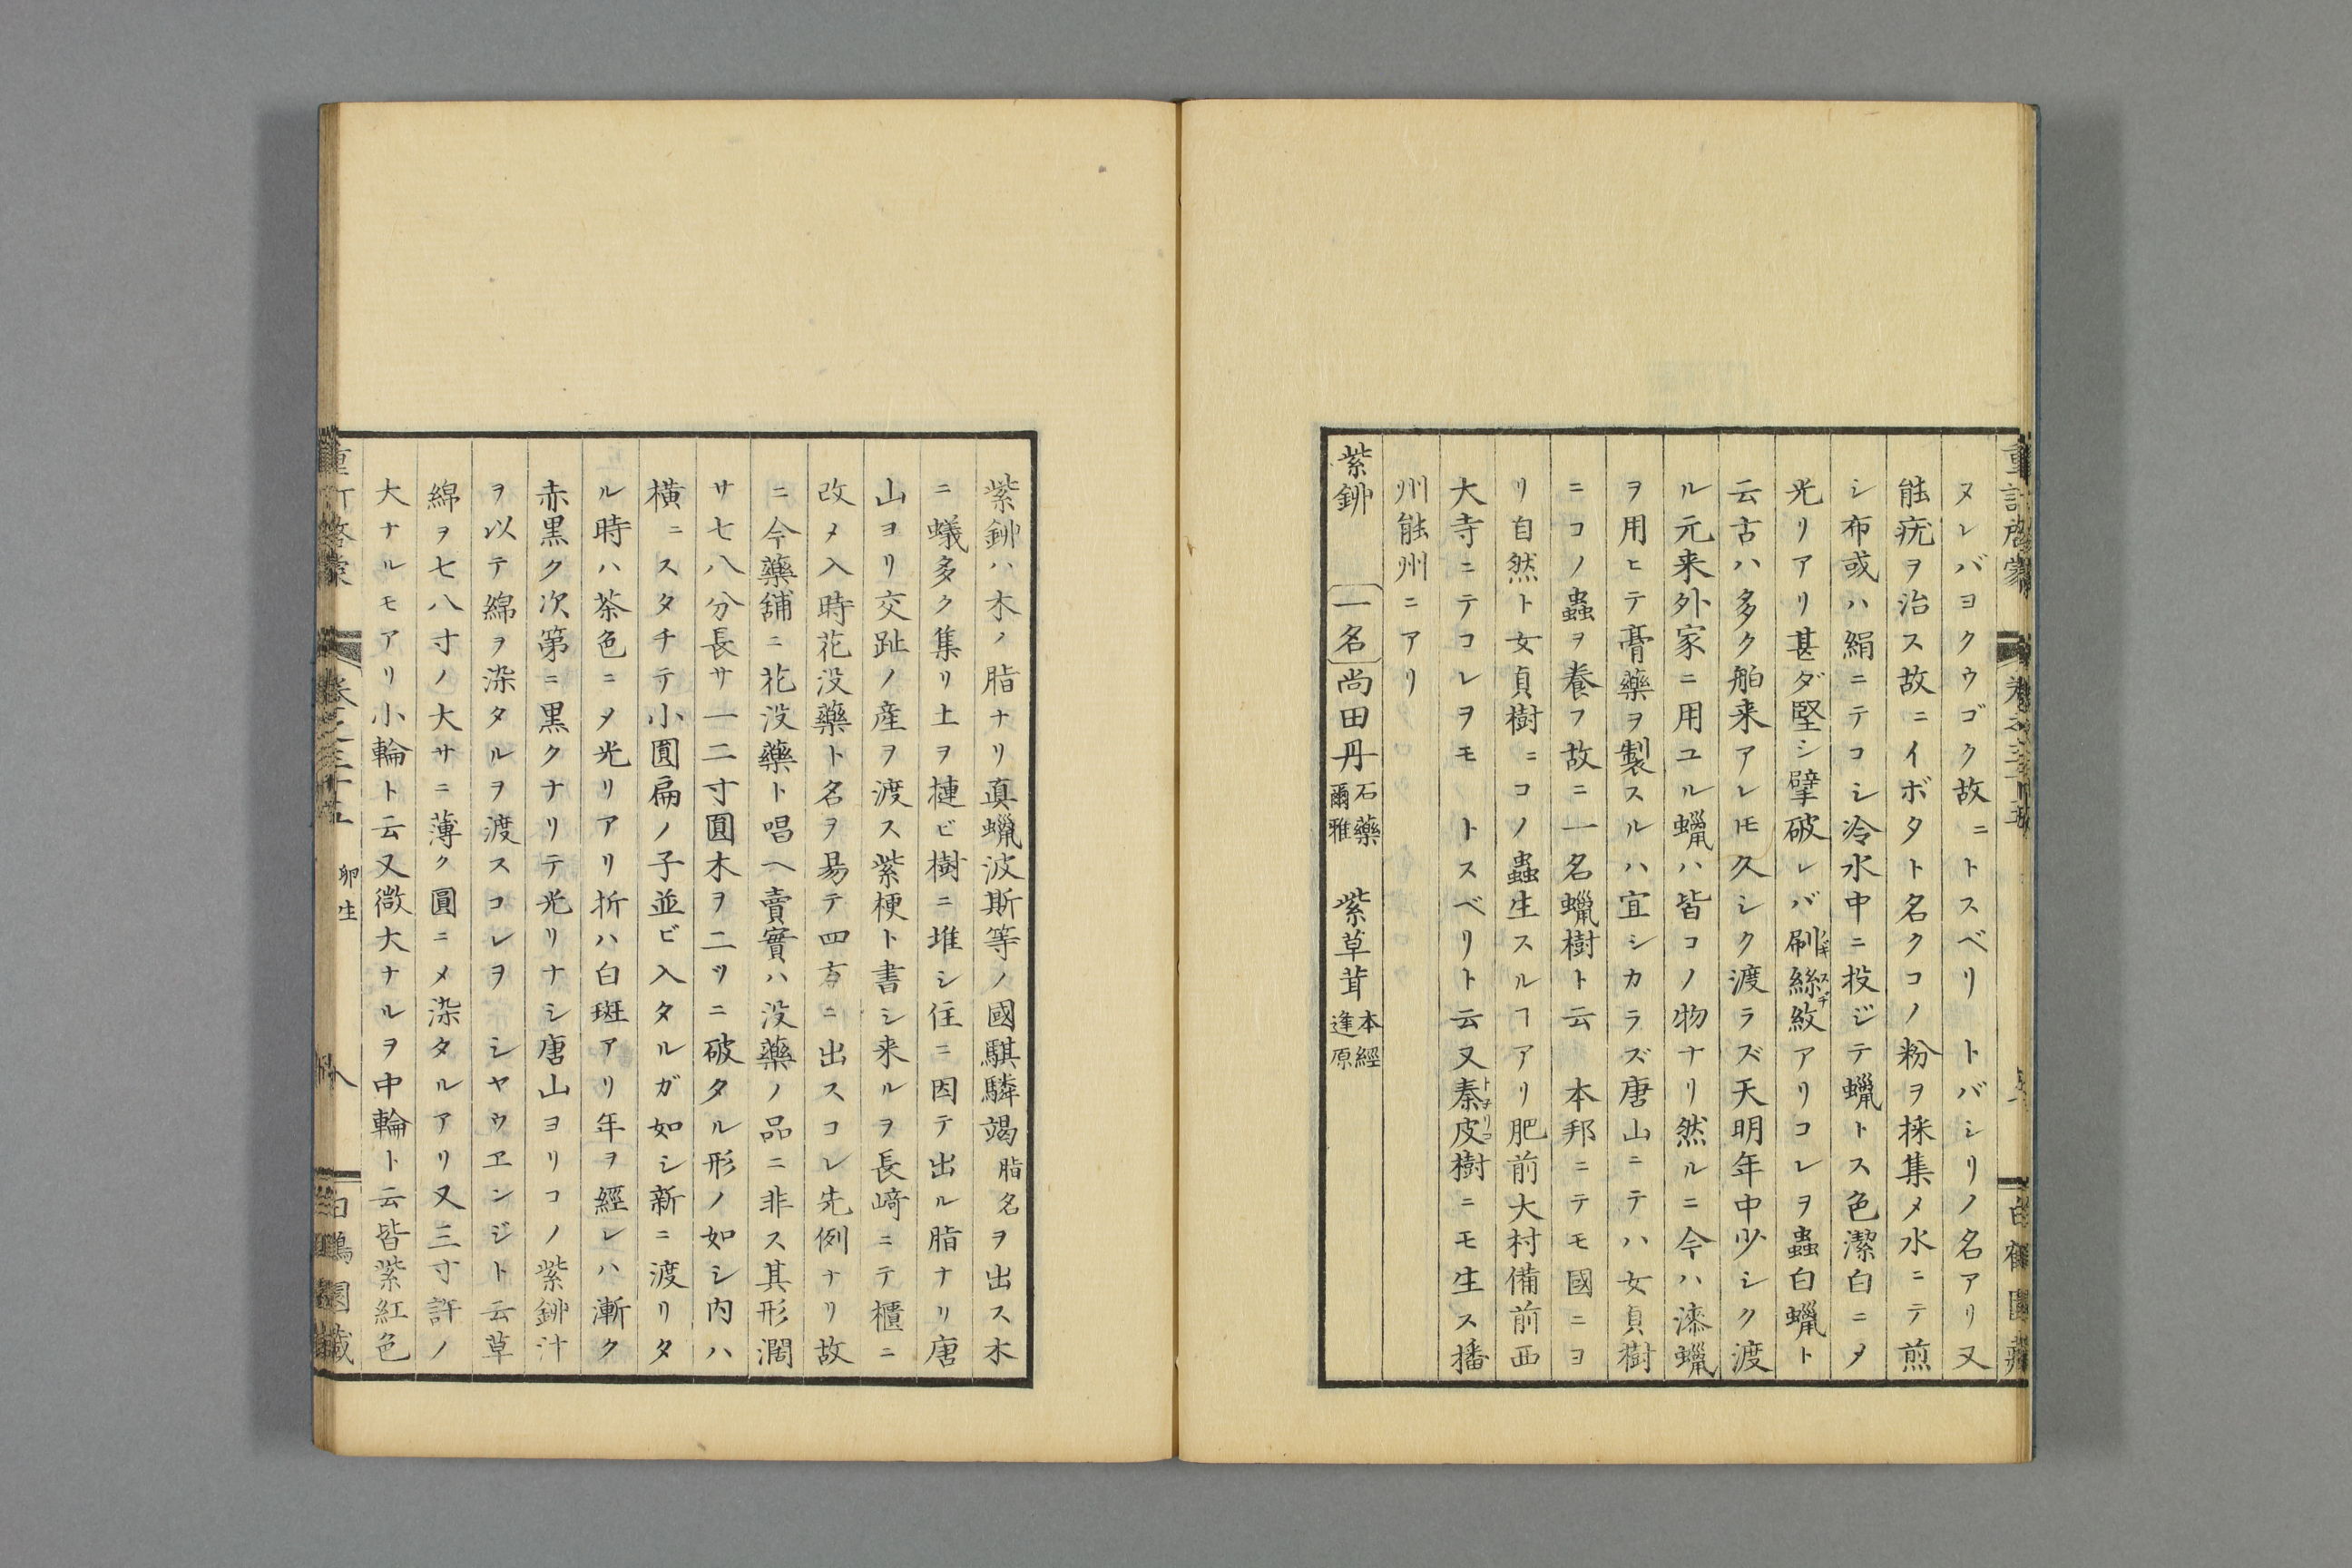 ヌレバヨクウゴク故ニトスベリ　トバシリノ名アリ又
能疣ヲ治ス故ニイボタト名クコノ粉ヲ採集メ水ニテ煎
シ布或ハ絹ニテコシ冷水中ニ投ジテ蠟トス色潔白ニメ
光リアリ甚ダ堅シ擘破レバ刷絲紋アリコレヲ蟲白蠟ト
云古ハ多ク舶来アレ𪜈久シク渡ラズ天明年中少シク渡
ル元来外家ニ用ユル蠟ハ皆コノ物ナリ然ルニ今ハ漆蠟
ヲ用ヒテ膏藥ヲ製スルハ宜シカラズ唐山ニテハ女貞樹
ニコノ蟲ヲ養フ故ニ一名蠟樹ト云　本邦ニテモ國ニヨ
リ自然ト女貞樹ニコノ蟲生スルヿアリ肥前大村備前西
大寺ニテコレヲモ　トスベリト云又秦皮樹ニモ生ス播
州能州ニアリ
紫鉚　一名　尚田丹 石藥爾雅　紫草茸 本經逢原
紫鉚ハ木ノ脂ナリ真蠟波斯等ノ國騏驎竭 脂名 ヲ出ス木
ニ蟻多ク集リ土ヲ摙ビ樹ニ堆シ住ニ因テ出ル脂ナリ唐
山ヨリ交趾ノ産ヲ渡ス紫梗ト書シ来ルヲ長﨑ニテ櫃ニ
改メ入時花没藥ト名ヲ易テ四方ニ出スコレ先例ナリ故
ニ今藥舖ニ花没藥ト唱ヘ賣實ハ没藥ノ品ニ非ス其形濶
サ七八分長サ一二寸圓木ヲ二ツニ破タル形ノ如シ内ハ
横ニスタチテ小圓扁ノ子並ビ入タルガ如シ新ニ渡リタ
ル時ハ茶色ニメ光リアリ折ハ白斑アリ年ヲ經レハ漸ク
赤黒ク次第ニ黒クナリテ光リナシ唐山ヨリコノ紫鉚汁
ヲ以テ綿ヲ染タルヲ渡スコレヲ　シヤウヱンジト云草
綿ヲ七八寸ノ大サニ薄ク圓ニメ染タルアリ又三寸許ノ
大ナルモアリ小輪ト云又微大ナルヲ中輪ト云皆紫紅色
卵生
八